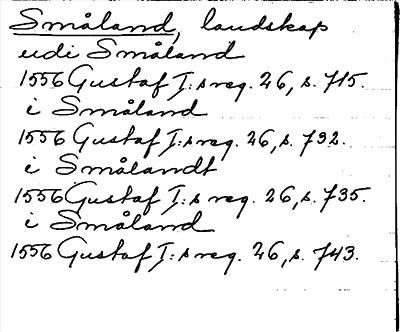 Småland, landskap
udi Småland
1556 Gustaf I:s reg. 26, s. 715.
i Småland
1556 Gustaf I:s reg. 26, s. 732.
i Smålandt
1556 Gustaf I:s reg. 26, s. 735.
i Småland
1556 Gustaf I:s reg. 26, s. 743.